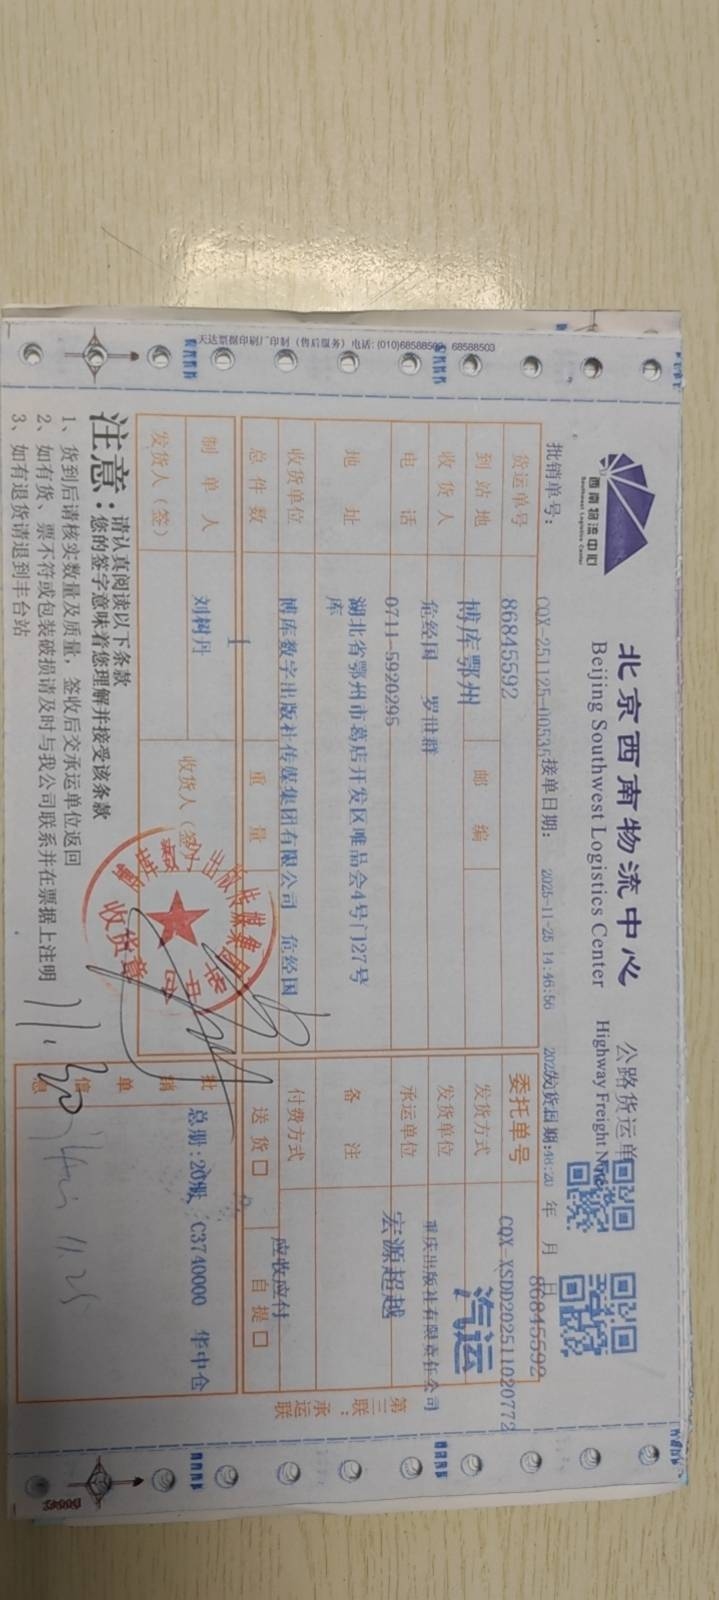 天达票据印刷厂印制（售后服务）电话:(010)68588503 68588503
西南物流中心
Southwest Logistics Center
北京西南物流中心
Beijing Southwest Logistics Center
公路货运单
Highway Freight
批销单号： CQX-251125-00535 接单日期： 2025-11-25 14:46:56 发货日期: 年 月 日
86845592
货运单号 86845592 委托单号 CQX-XSDD202511020772
到站地 博库鄂州 邮编 发货方式 汽运
收货人 危经国 罗世群 发货单位 重庆出版社有限责任公司
电话 0711-5920295 承运单位 宏源超越
地址 湖北省鄂州市葛店开发区唯品会4号门27号库 备注
收货单位 博库数字出版社传媒集团有限公司 危经国 付费方式 应收应付
总件数 1 重量 送货□ 自提□
制单人 刘树丹 收货人（签）
发货人（签）
批销单信息 总册:20版 C3740000 华中仓
收货章
第三联：承运联
注意：请认真阅读以下条款
您的签字意味着您理解并接受该条款
1、货到后请核实数量及质量，签收后交承运单位返回
2、如有货、票不符或包装破损请及时与我公司联系并在票据上注明
3、如有退货请退到丰台站
11.30
11.25